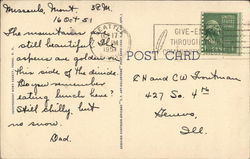 Missoula, Mont. 5 P.M.
16 Oct 51
The mountains
still beautiful. The
aspens are golden on
this side of the divide.
Do you remember
eating lunch here?
Still chilly, but
no snow.
Dad.
SEATTLE
OCT 17
1951
GIVE-EN
THROUGH
COMMUN
POST CARD
E H and C W
427 So. 4th
Geneva,
Ill.